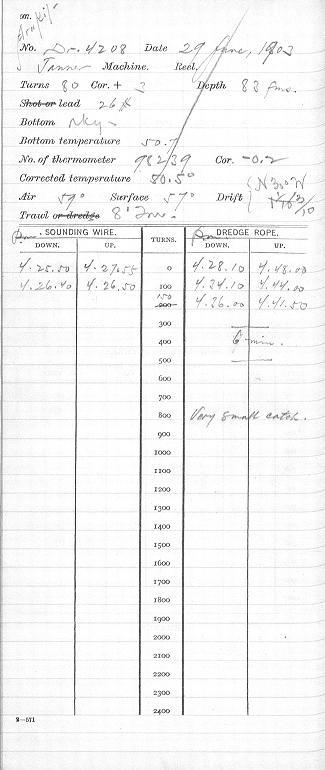 No. Dr. 4208 Date 29 June, 1903
Tanner Machine. Reel.
Turns 80 Cor. + 3 Depth 83 fms.
Shot or lead 26 #
Bottom rky
Bottom temperature 50.7
No. of thermometer 98239 Cor. -0.2
Corrected temperature 50.5°
Air 59° Surface 57° Drift N 30° W
Trawl or dredge 8'
SOUNDING WIRE. TURNS. DREDGE ROPE.
DOWN. UP. DOWN. UP.
4.25.50 4.27.55 0 4.28.10 4.48.00
4.26.40 4.26.50 100 4.34.10 4.44.00
150
200 4.36.00 4.41.50
300
400 6 min.
500
600
700
800 Very small catch.
900
1000
1100
1200
1300
1400
1500
1600
1700
1800
1900
2000
2100
2200
2300
2400
2—571